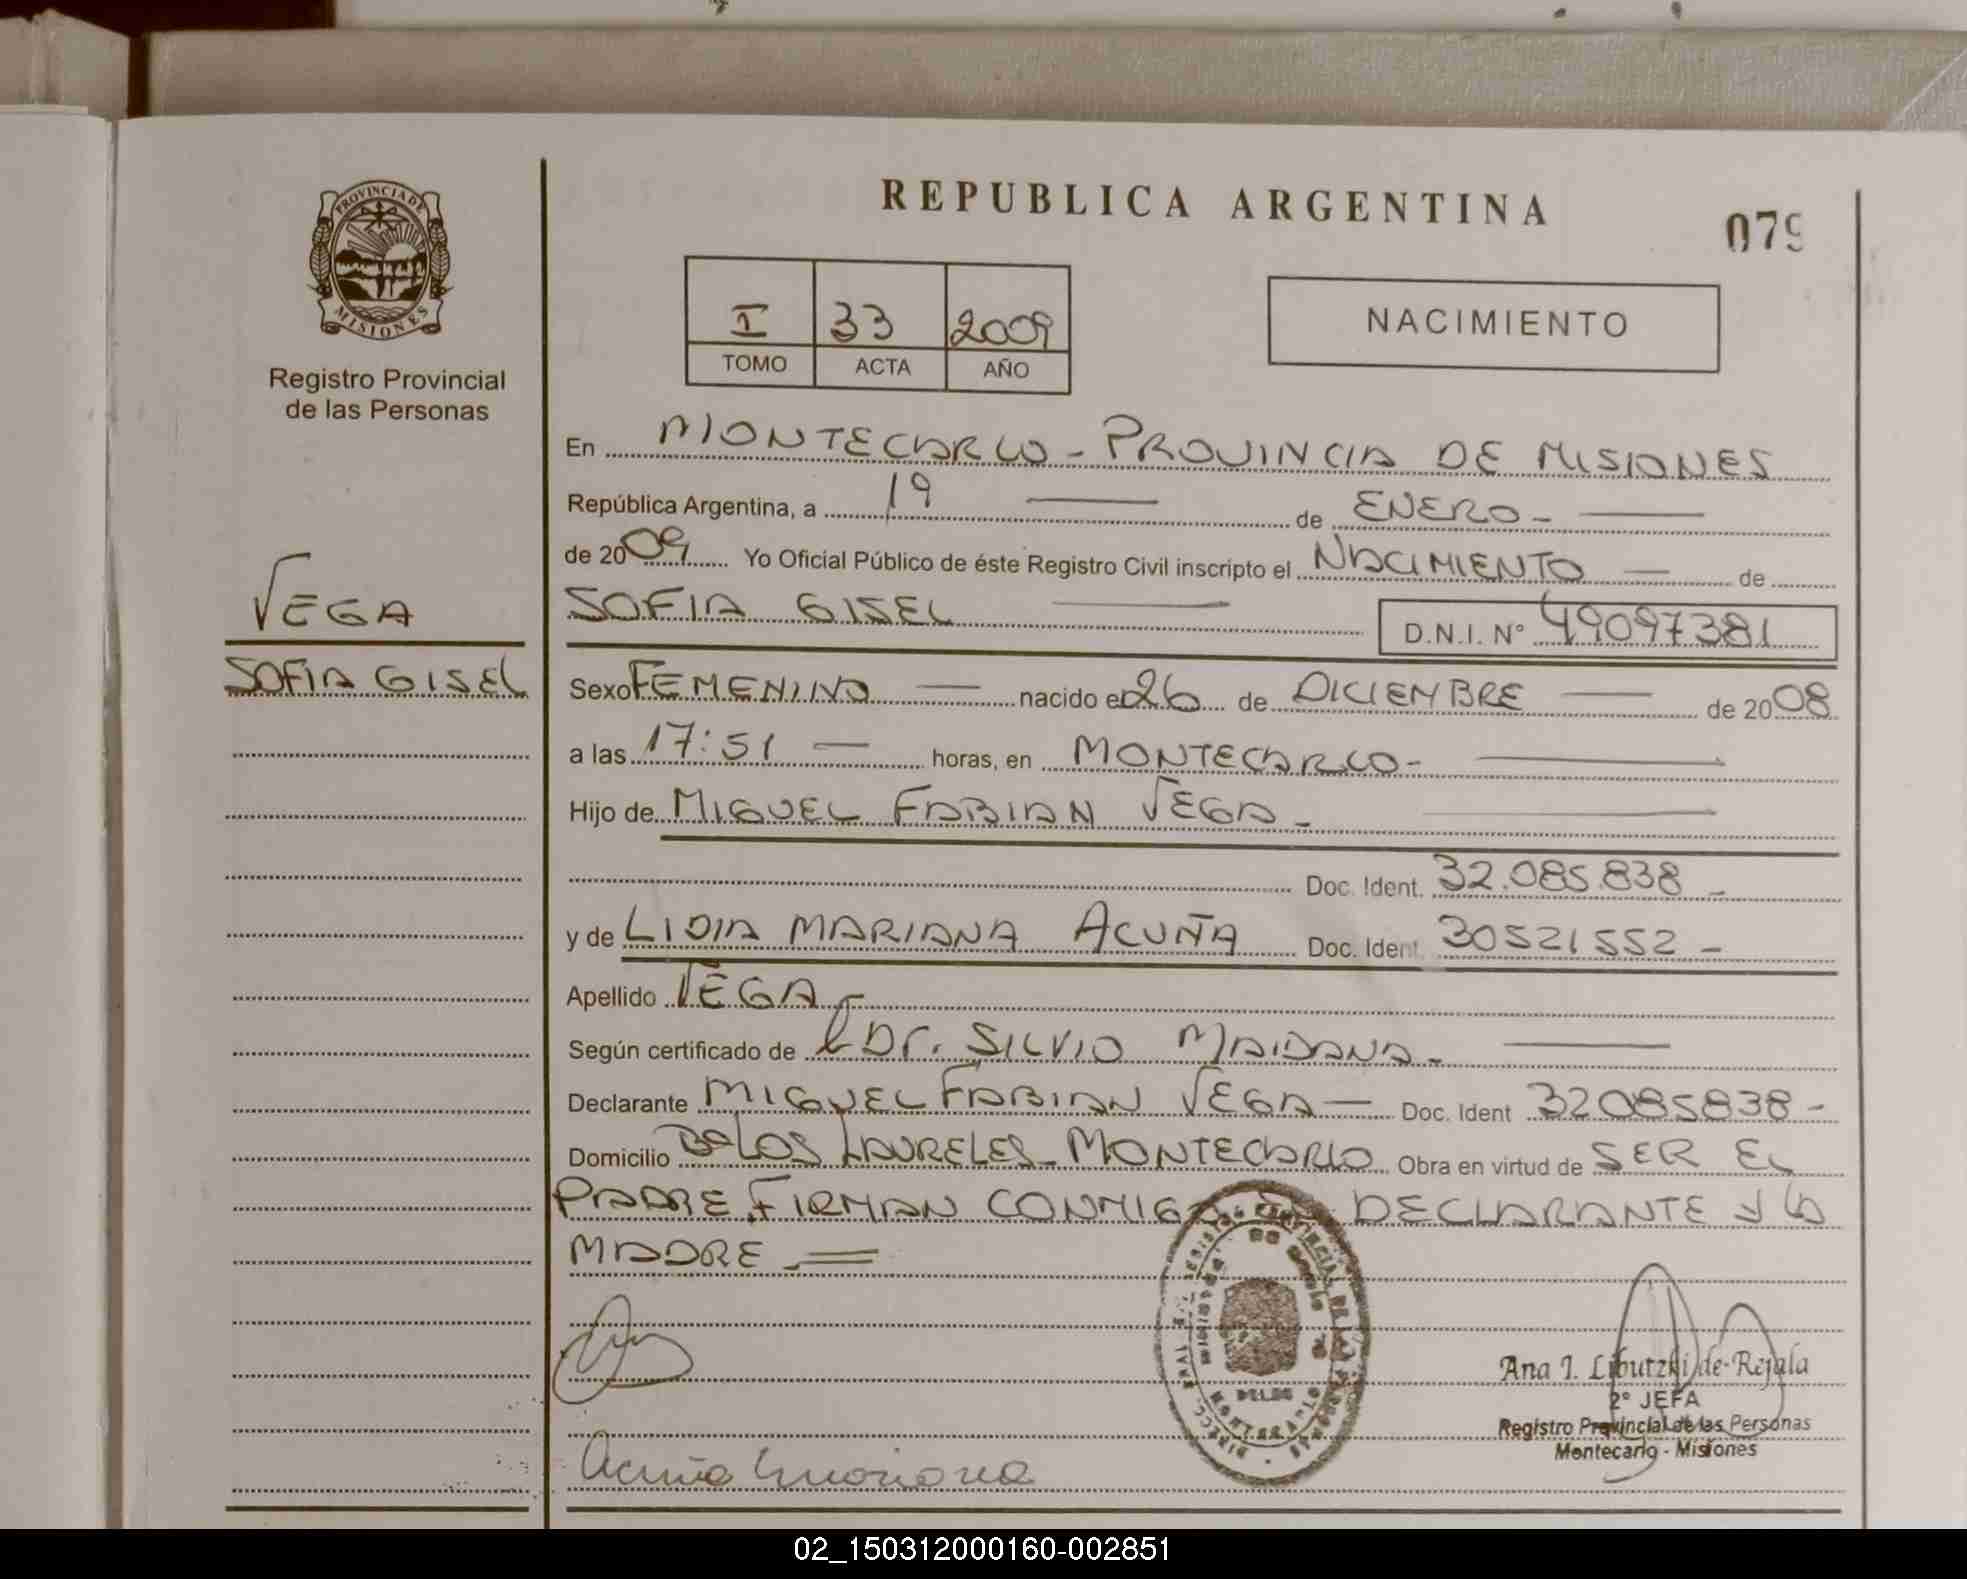 REPUBLICA ARGENTINA
079
PROVINCIA DE
MISIONES
Registro Provincial
de las Personas
I 33 2009
TOMO ACTA AÑO
NACIMIENTO
En MONTECARLO - PROVINCIA DE MISIONES
República Argentina, a 19 — de ENERO - —
de 2009 Yo Oficial Público de éste Registro Civil inscripto el NACIMIENTO — de
VEGA
SOFIA GISEL — D.N.I. N° 49097381
SOFIA GISEL
Sexo FEMENINO — nacido el 26 de DICIEMBRE — de 2008
a las 17:51 — horas, en MONTECARLO- —
Hijo de MIGUEL FABIAN VEGA - —
Doc. Ident. 32.085.838 -
y de LIDIA MARIANA ACUÑA Doc. Ident. 30521552 -
Apellido VEGA -
Según certificado de Dr. SILVIO MAIDANA - —
Declarante MIGUEL FABIAN VEGA — Doc. Ident 32085838 -
Domicilio Bº LOS LAURELES - MONTECARLO Obra en virtud de SER EL
PADRE. FIRMAN CONMIGO DECLARANTE Y LA
MADRE =
Ana I. Liburzki de Rejala
2° JEFA
Registro Provincial de las Personas
Montecarlo - Misiones
Acuña Mariana
02_150312000160-002851